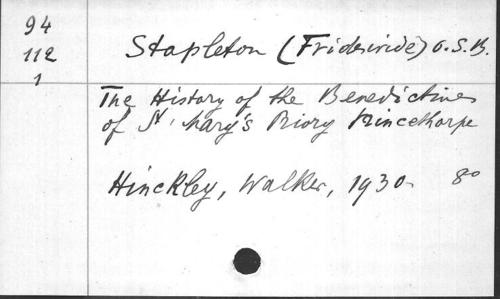 94
112
1
Stapleton (Frideswide) O.S.B.
The History of the Benedictines
of St. Mary's Priory Princethorpe
Hinckley, Walker, 1930. 8°